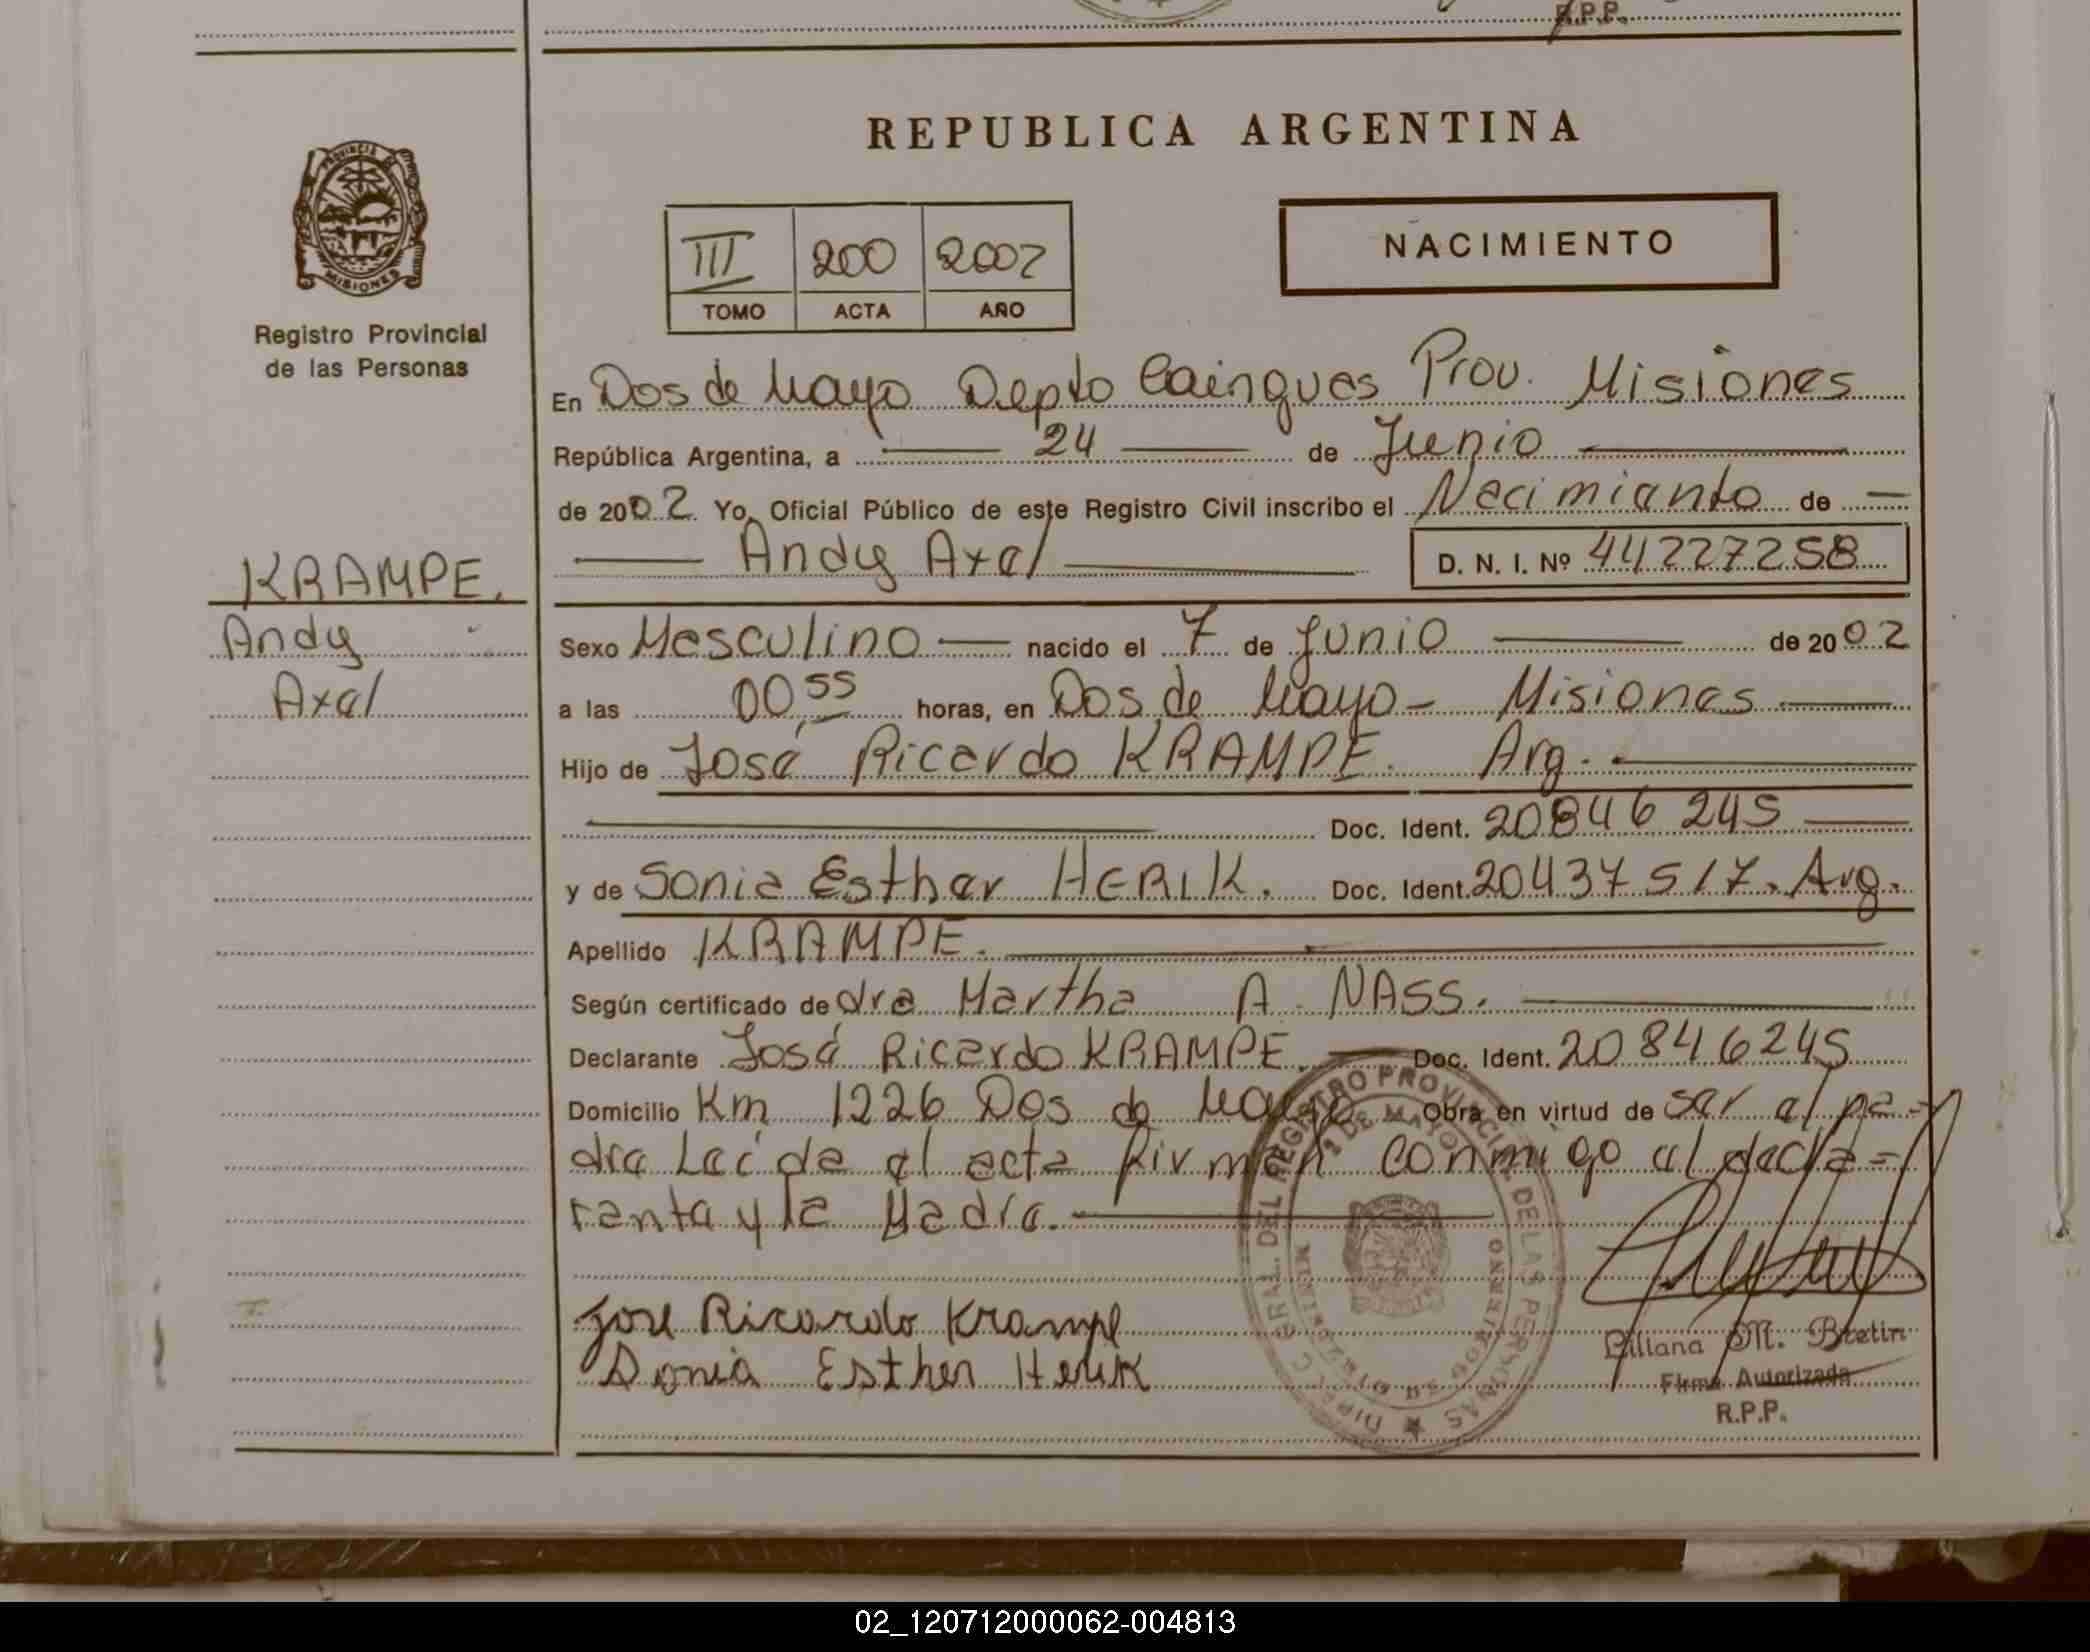 R.P.P.
REPUBLICA ARGENTINA
PROVINCIA DE
MISIONES
Registro Provincial
de las Personas
III 200 2002
TOMO ACTA AÑO
NACIMIENTO
En Dos de Mayo Depto Cainguas Prov. Misiones
República Argentina, a 24 de Junio
de 2002 Yo, Oficial Público de este Registro Civil inscribo el Nacimiento de
Andy Axel D. N. I. Nº 44227258
KRAMPE.
Andy
Axel
Sexo Masculino nacido el 7 de Junio de 2002
a las 00,55 horas, en Dos de Mayo - Misiones
Hijo de José Ricardo KRAMPE. Arg.
Doc. Ident. 20846245
y de Sonia Esther HERIK. Doc. Ident. 20437517. Arg.
Apellido KRAMPE.
Según certificado de dra Martha A. NASS.
Declarante José Ricardo KRAMPE. Doc. Ident. 20846245
Domicilio Km 1226 Dos de Mayo Obra en virtud de ser el pa-
dre Leída el acta firman conmigo el decla-
rante y la Madre.
DIR. GRAL. DEL REGISTRO PROVINCIAL DE LAS PERSONAS
2 DE MAYO
MINISTERIO DE GOBIERNO
Jose Ricardo Krampe
Sonia Esther Herik
Liliana M. Bretin
Firma Autorizada
R.P.P.
02_120712000062-004813